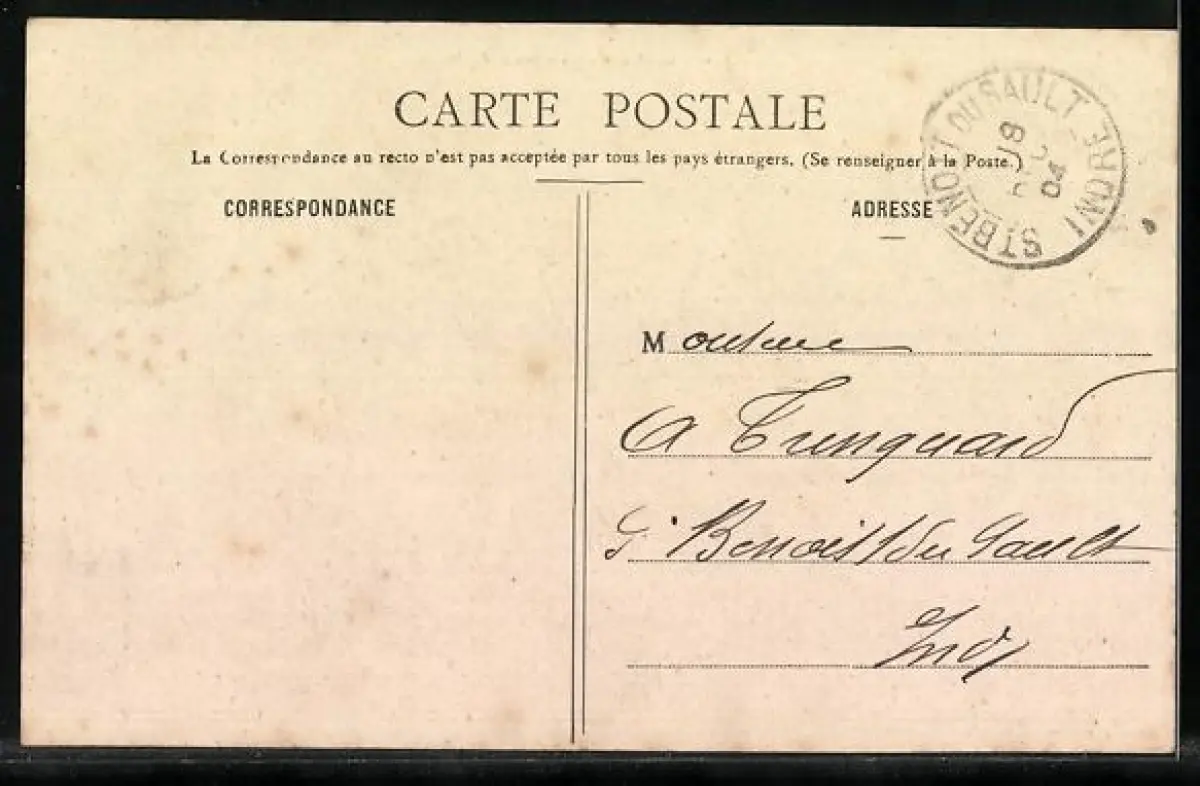 CARTE POSTALE
La Correspondance au recto n'est pas acceptée par tous les pays étrangers. (Se renseigner à la Poste.)
CORRESPONDANCE
ADRESSE
ST BENOIT DU SAULT (INDRE)
04
M
A
St Benoist du Sault
Indre